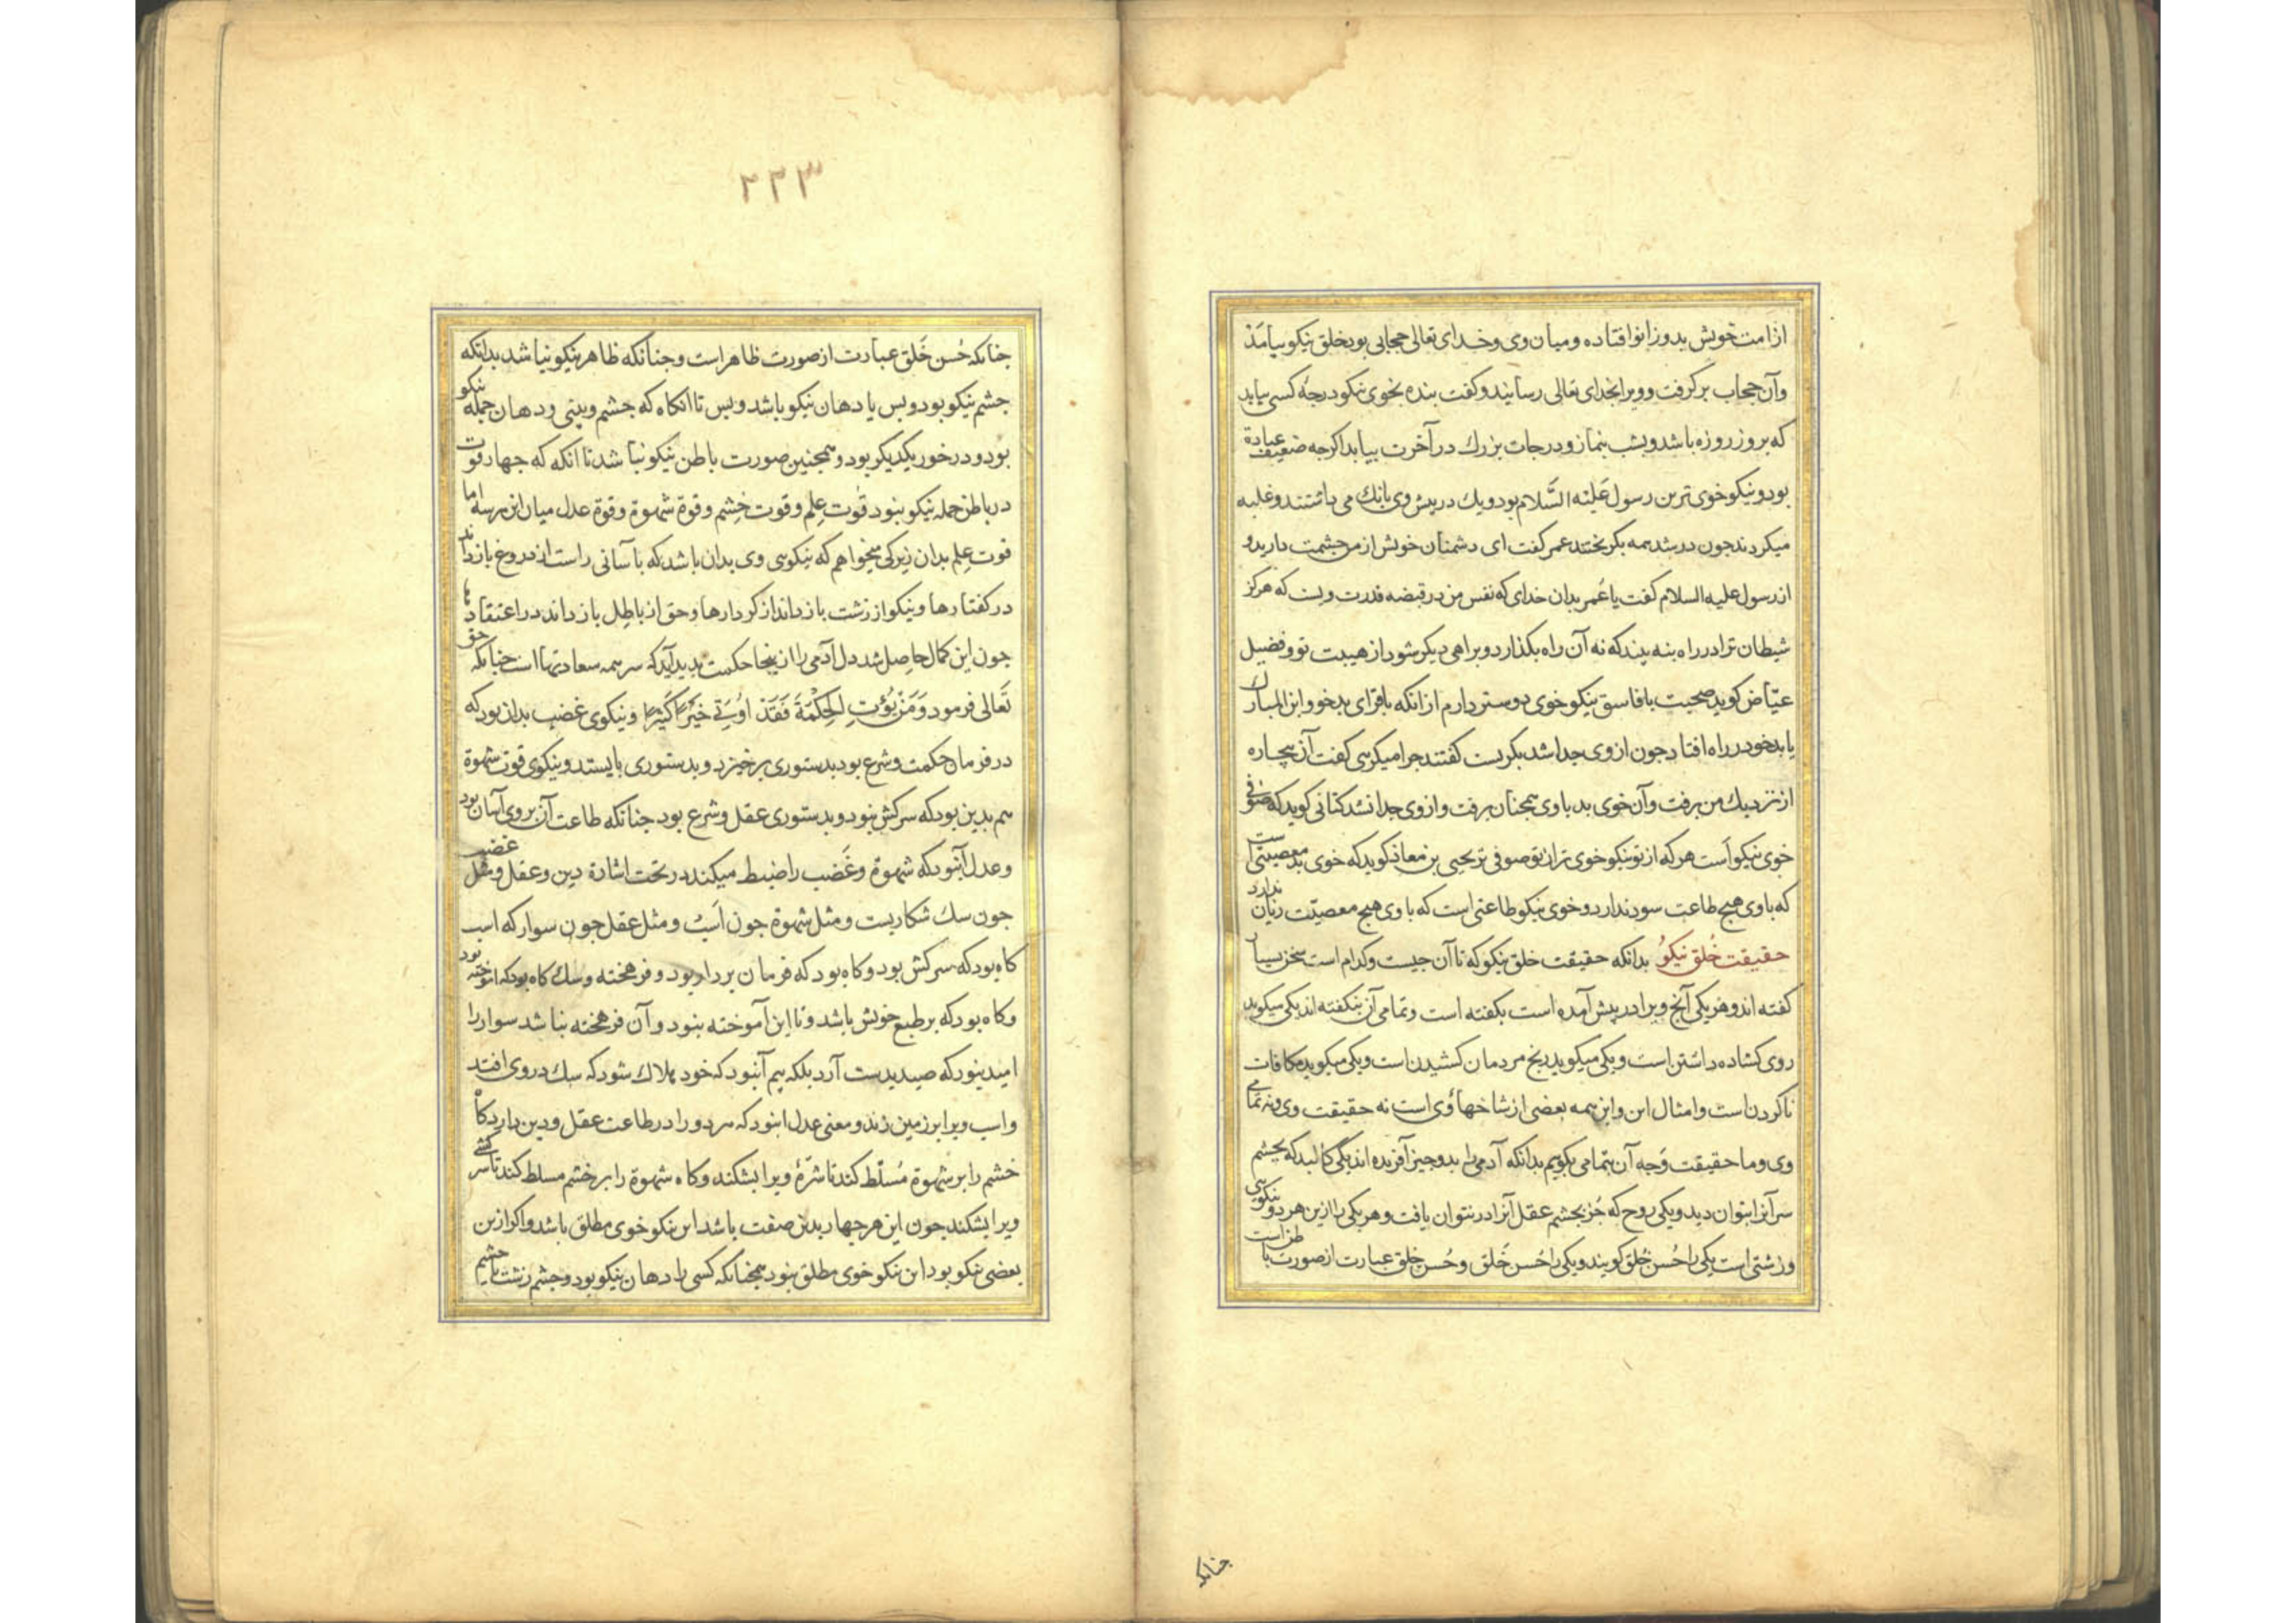 از امت خویش بدو زانو افتاده و میان وی و خدای تعالی حجابی بود خلق نیکو بیامذ
وآن حجاب بر کرفت و ویرا بخدای تعالی رسانید و کفت بنده بخوی نیکو درجهٔ کسی بیابد
که بروز روزه باشد و بشب بنماز و درجات بزرك در آخرت بیابد اکرجه ضعیف عبادة
بود و نیکو خوی ترین رسول عَلَیْه السَّلام بود و یك در پیش وی بانك می داشتند و غلبه
میکردند جون در شد همه بکریختند عمر کفت ای دشمنان خویش از من حشمت دارید و
از رسول علیه السلام کفت یا عُمر بدان خدای که نفس من در قبضه قدرت ویست که هرکز
شیطان ترا در راه بنه بیند که نه آن راه بکذارد و براهی دیکر شود از هیبت تو و فضیل
عیّاض کوید صحبت با فاسق نیکو خوی دوستر دارم از انکه با قرای بدخو و ابن المبارك
با بدخو در راه افتاد جون از وی جدا شد بکریست کفتند جرا میکریی کفت آن بیچاره
از نزدیك من برفت وآن خوی بد با وی همجنان برفت و از وی جدا نشد کتانی کوید که صوفی
خوی نیکو است هرکه از تو نیکو خوی تر از تو صوفی تر یحیی بن معاذ کوید که خوی بد معصیتی است
که با وی هیج طاعت سود ندارد و خوی نیکو طاعتی است که با وی هیج معصیت زیان ندارد
حقیقت خُلق نیکوُ بدانکه حقیقت خلق نیکو که تا آن جیست و کدام است سخن بسیار
کفته اند و هر یکی آنج ویرا در پیش آمده است بکفته است و تمامی آن بنکفته اند یکی میکوید
روی کشاده داشتن است و یکی میکوید رنج مردمان کشیدن است و یکی میکوید مکافات
ناکردن است و امثال این و این همه بعضی از شاخهاءوی است نه حقیقت وی و نه تمامی
وی و ما حقیقت وَجه آن بتمامی بکوییم بدانکه آدمی را بدو جیز آفریده اند یکی کالبد که بجشم
سر آنرا بتوان دید و یکی روح که جُز بجشم عقل آنرا در نتوان یافت و هر یکی را ازین هر دو نیکویی
و زشتی است یکی را حُسن خُلق کویند و یکی را حُسن خَلق و حُسن خلق عبارت از صورت باطن است
جنانکه
۲۲۳
جنانکه حُسن خَلق عبارت از صورت ظاهر است و جنانکه ظاهر نیکو نباشد بدانکه
جشم نیکو بود و بس یا دهان نیکو باشد و بس تا انکاه که جشم و بینی و دهان جمله نیکو
بود و در خور یکدیکر بود و همجنین صورت باطن نیکو نباشد تا انکه که جهار قوت
در باطن جمله نیکو نبود قوّت عِلم و قوت خِشم و قوة شهوة و قوة عدل میان این هر سه اما
قوت عِلم بدان زیرکی میخواهم که نیکویی وی بدان باشد که بآسانی راست از دروغ باز داند
در کفتارها و نیکو از زشت باز داند از کردارها و حق از باطِل باز داند در اعتقادها
جون این کمال حاصِل شد دل آدمی را از ینجا حکمت بدید آید که سر همه سعادتهااست جنانکه حق
تَعالی فرمود وَمَنْ یُؤْتِ الحِکْمَةَ فَقَدْ اُوتِیَ خَیْرًا کَثِیْرًا و نیکوی غضب بدان بود که
در فرمان حکمت و شرع بود بدستوری برخیزد و بدستوری بایستد و نیکوی قوت شهوة
هم بدین بود که سرکش نبود و بدستوری عقل و شرع بود جنانکه طاعت آن بروی آسان بود
و عدل آنبود که شهوة و غَضب را ضبط میکند در تحت اشارة دین و عقل و مثل غضب
جون سك شکاریست و مثل شهوة جون اَسب و مثل عقل جون سوار که اسب
کاه بود که سرکش بود و کاه بود که فرمان بردار بود و فرهخته و سك کاه بود که اموخته بود
و کاه بود که بر طبع خویش باشد و تا این آموخته نبود و آن فرهخته نباشد سوار را
امید نبود که صید بدست آرد بلکه بیم آنبود که خود هلاك شود که سك در وی افتد
و اسب ویرا بر زمین زند و معنی عدل اینود که هر دو را در طاعت عقل و دین دارد کاه
خشم را بر شهوة مُسلّط کند تا شَرّهٔ ویرا بشکند و کاه شهوة را بر خشم مسلط کند تا سرکشی
ویرا بشکند جون این هر جهار بدین صفت باشد این نیکو خوی مطلق باشد و اکر ازین
بعضی نیکو بود این نیکو خوی مطلق نبود همجنانکه کسی را دهان نیکو بود و جشم زشت یا جشم